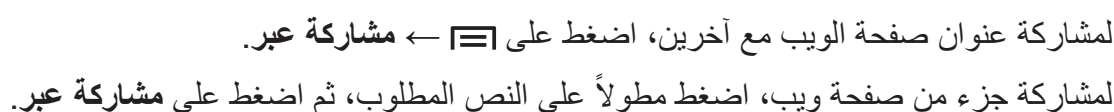 لمشاركة عنوان صفحة الويب مع آخرين، اضغط على ← مشاركة عبر.
لمشاركة جزء من صفحة ويب، اضغط مطولاً على النص المطلوب، ثم اضغط على مشاركة عبر.